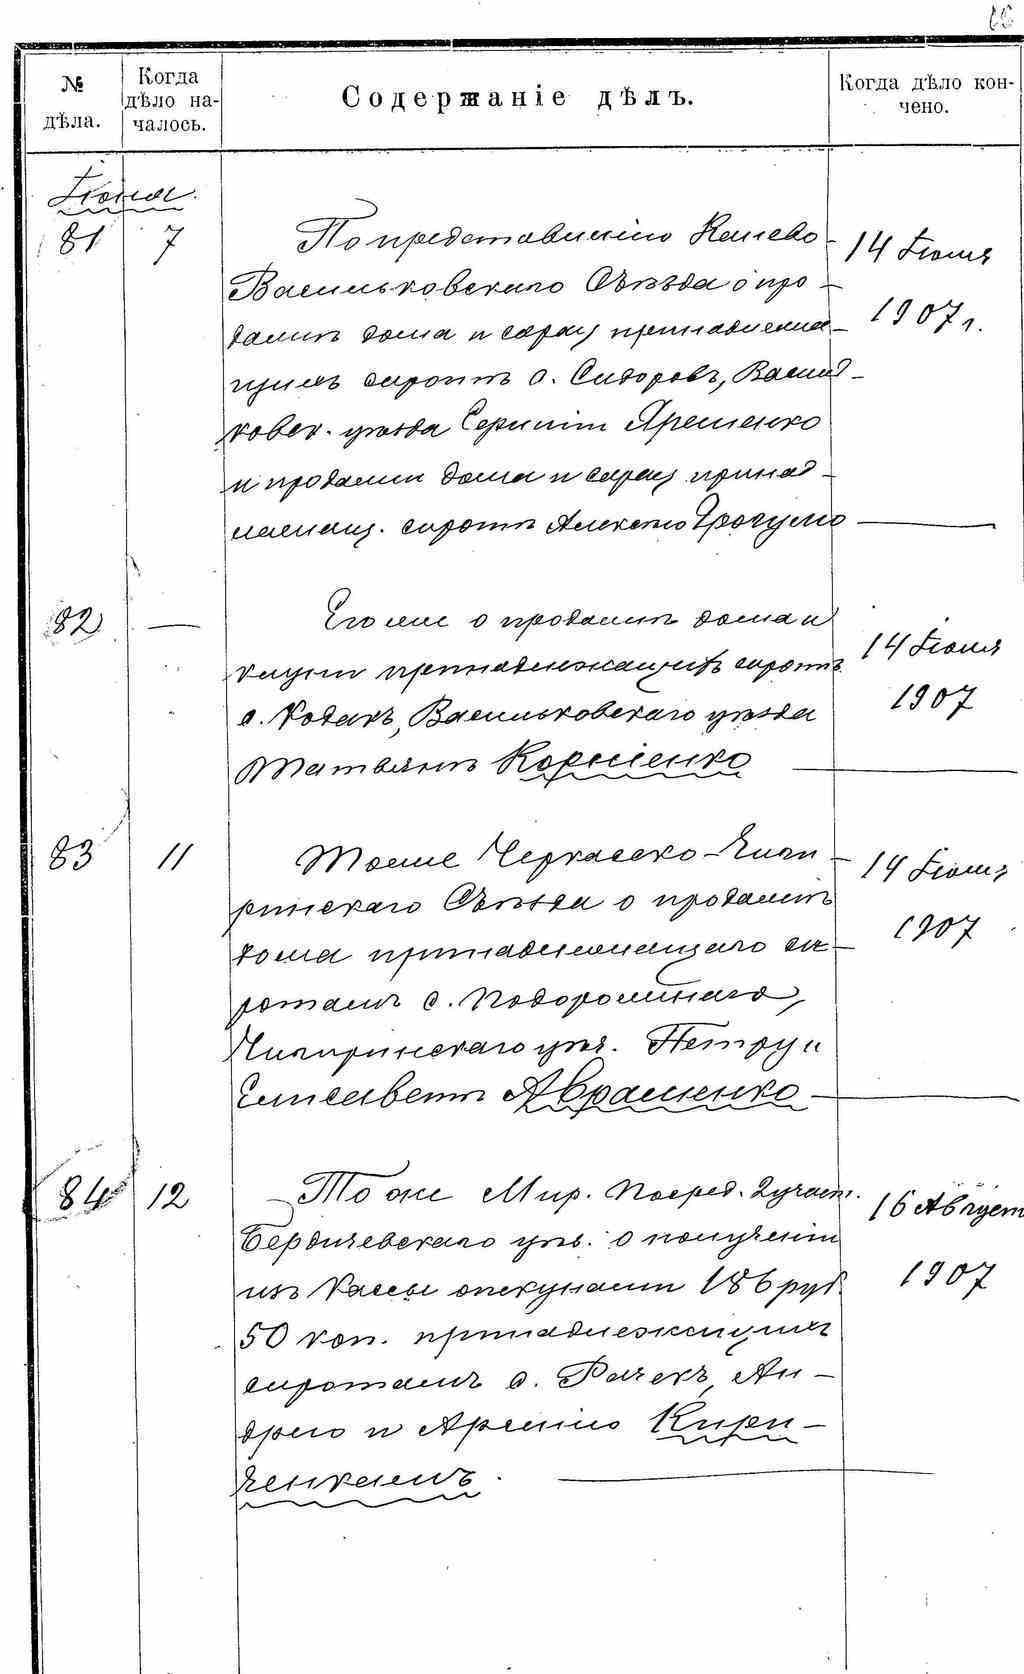 № дѣла.
Когда дѣло на-
чалось.
Содержаніе дѣлъ.
Когда дѣло кон-
чено.
Іюня.
81 7 По представленію Каневo-
Васильковскаго Съѣзда о про-
дажѣ дома и сарая принадлежа-
щихъ сиротѣ с. Сидоровъ, Василь-
ковск. уѣзда Сергѣю Яременко
и продажи дома и сарая принад-
лежащ. сиротѣ Алексѣю
14 Іюля
1907 г.
82 — Его же о продажѣ дома и
клуни принадлежащихъ сиротѣ
с. Кодакъ, Васильковскаго уѣзда
Татьянѣ Корніенко
14 Іюля
1907
83 11 Тоже Черкасско-Чиги-
ринскаго Съѣзда о продажѣ
дома принадлежащаго си-
ротамъ с. Подорожнаго,
Чигиринскаго уѣз. Петру и
Елисаветѣ Авраменко
14 Іюля
1907
84 12 То же Мир. Посред. 2 участ.
Бердичевскаго уѣз. о полученіи
изъ Кассы опекунами 186 руб.
50 коп. принадлежащихъ
сиротамъ с. Рачекъ, Ан-
дрею и Арсенію Кири-
ченкамъ.
16 Август
1907